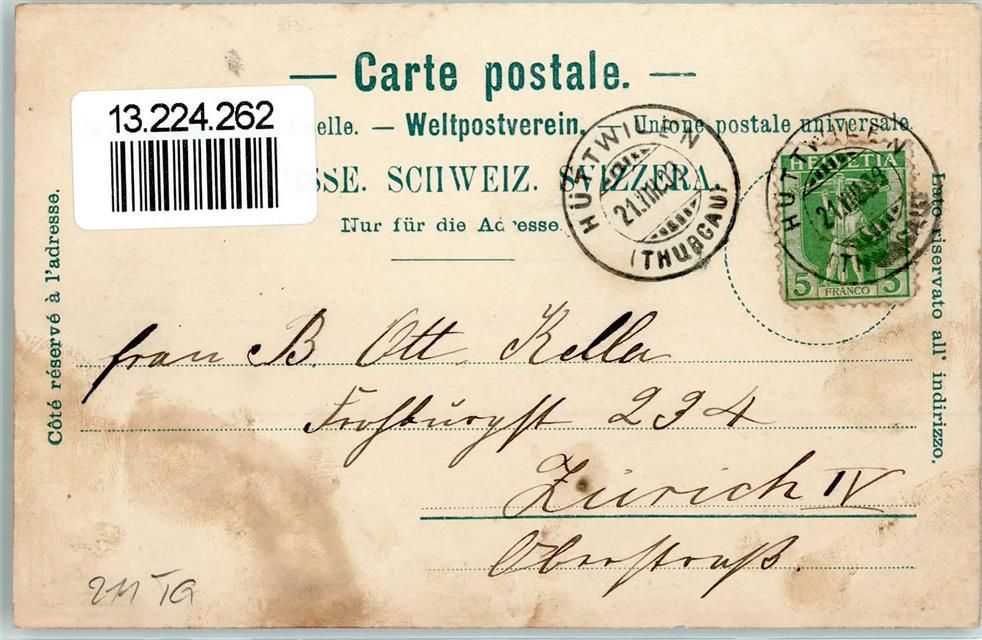 Carte postale.
13.224.262
elle. — Weltpostverein. Unione postale universale
SSE. SCHWEIZ. SVIZZERA.
Nur für die Adresse.
HÜTTWILEN
21.VIII.09
(THURGAU)
HÜTTWILEN
21.VIII.09
HELVETIA
5 FRANCO 5
Côté réservé à l'adresse.
Lato riservato all' indirizzo.
frau B. Ott Keller
Frohburgst 234
Zürich IV
Oberstraß.
211 TG